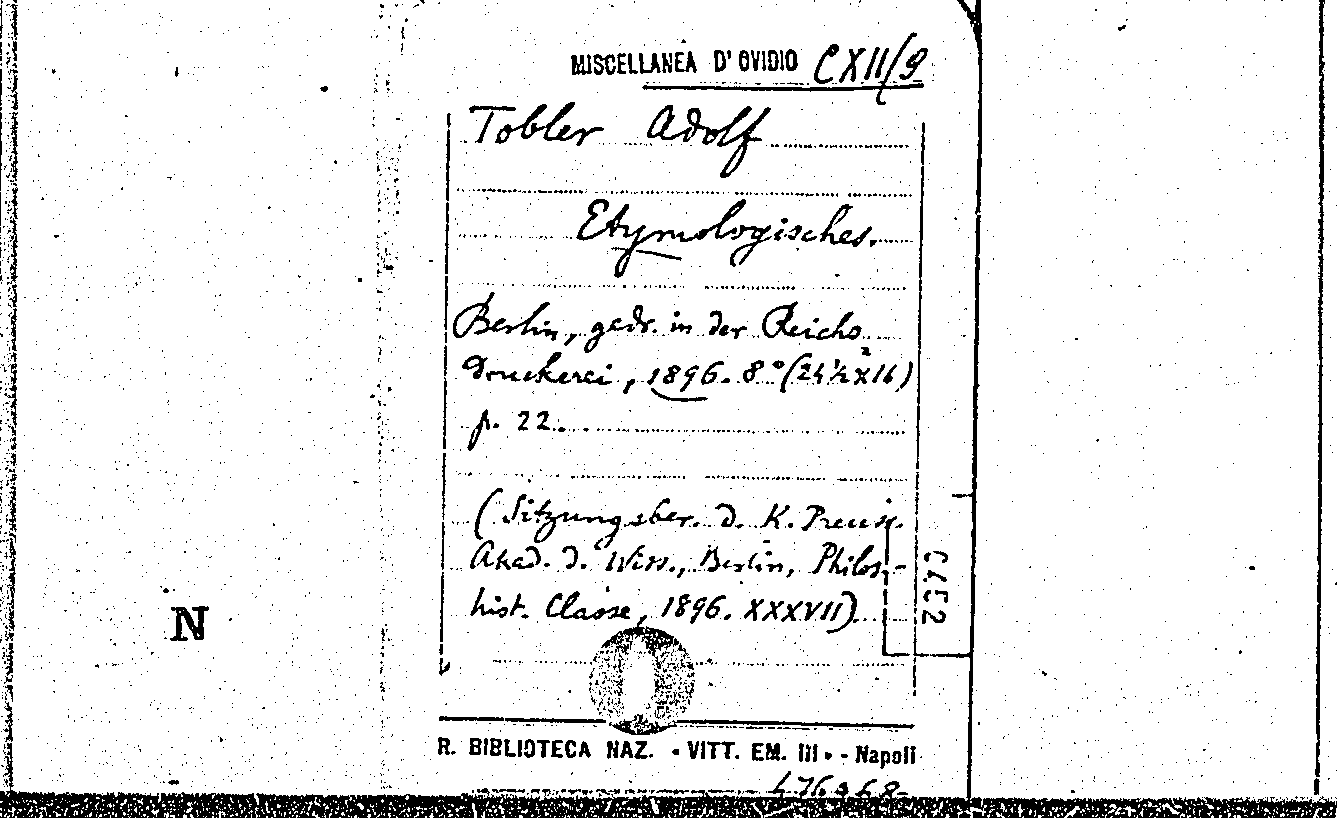 MISCELLANEA D'OVIDIO CXII/9
Tobler Adolf
Etymologisches.
Berlin, gedr. in der Reichs
druckerei, 1896. 8° (24½ x 16)
p. 22.
(Sitzungsber. d. K. Preuss.
Akad. d. Wiss., Berlin, Philos.-
hist. Classe, 1896. XXXVII).
C452
N
R. BIBLIOTECA NAZ. - VITT. EM. III - - Napoli